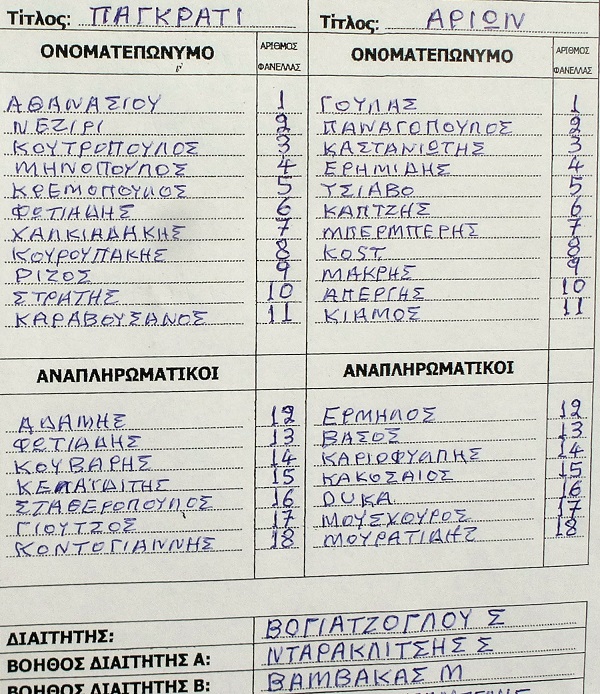 Τίτλος: ΠΑΓΚΡΑΤΙ Τίτλος: ΑΡΙΩΝ
ΟΝΟΜΑΤΕΠΩΝΥΜΟ ΑΡΙΘΜΟΣ ΦΑΝΕΛΛΑΣ ΟΝΟΜΑΤΕΠΩΝΥΜΟ ΑΡΙΘΜΟΣ ΦΑΝΕΛΛΑΣ
ΑΘΑΝΑΣΙΟΥ 1 ΓΟΥΛΑΣ 1
ΝΕΖΙΡΙ 2 ΠΑΝΑΓΟΠΟΥΛΟΣ 2
ΚΟΥΤΡΟΠΟΥΛΟΣ 3 ΚΑΣΤΑΝΙΩΤΗΣ 3
ΜΗΝΟΠΟΥΛΟΣ 4 ΕΡΗΜΙΔΗΣ 4
ΚΡΕΜΟΠΟΥΛΟΣ 5 ΤΣΙΑΒΟ 5
ΦΩΤΙΑΔΗΣ 6 ΚΑΠΤΖΗΣ 6
ΧΑΛΚΙΑΔΑΚΗΣ 7 ΜΠΕΡΜΠΕΡΗΣ 7
ΚΟΥΡΟΥΠΑΚΗΣ 8 KOST 8
ΡΙΖΟΣ 9 ΜΑΚΡΗΣ 9
ΣΤΡΑΤΗΣ 10 ΑΠΕΡΓΗΣ 10
ΚΑΡΑΒΟΥΣΑΝΟΣ 11 ΚΙΑΜΟΣ 11
ΑΝΑΠΛΗΡΩΜΑΤΙΚΟΙ ΑΝΑΠΛΗΡΩΜΑΤΙΚΟΙ
ΑΔΑΜΗΣ 12 ΕΡΜΗΛΟΣ 12
ΦΩΤΙΑΔΗΣ 13 ΒΑΣΟΣ 13
ΚΟΥΒΑΡΗΣ 14 ΚΑΡΙΟΦΥΛΛΗΣ 14
15 ΚΑΚΟΣΑΙΟΣ 15
ΣΤΑΘΕΡΟΠΟΥΛΟΣ 16 DUKA 16
ΓΙΟΥΤΖΟΣ 17 ΜΟΥΣΧΟΥΡΟΣ 17
ΚΟΝΤΟΓΙΑΝΝΗΣ 18 ΜΟΥΡΑΤΙΔΗΣ 18
ΔΙΑΙΤΗΤΗΣ: ΒΟΓΙΑΤΖΟΓΛΟΥ Σ
ΒΟΗΘΟΣ ΔΙΑΙΤΗΤΗΣ Α: ΝΤΑΡΑΚΛΙΤΣΗΣ Σ
ΒΟΗΘΟΣ ΔΙΑΙΤΗΤΗΣ Β: ΒΑΜΒΑΚΑΣ Μ